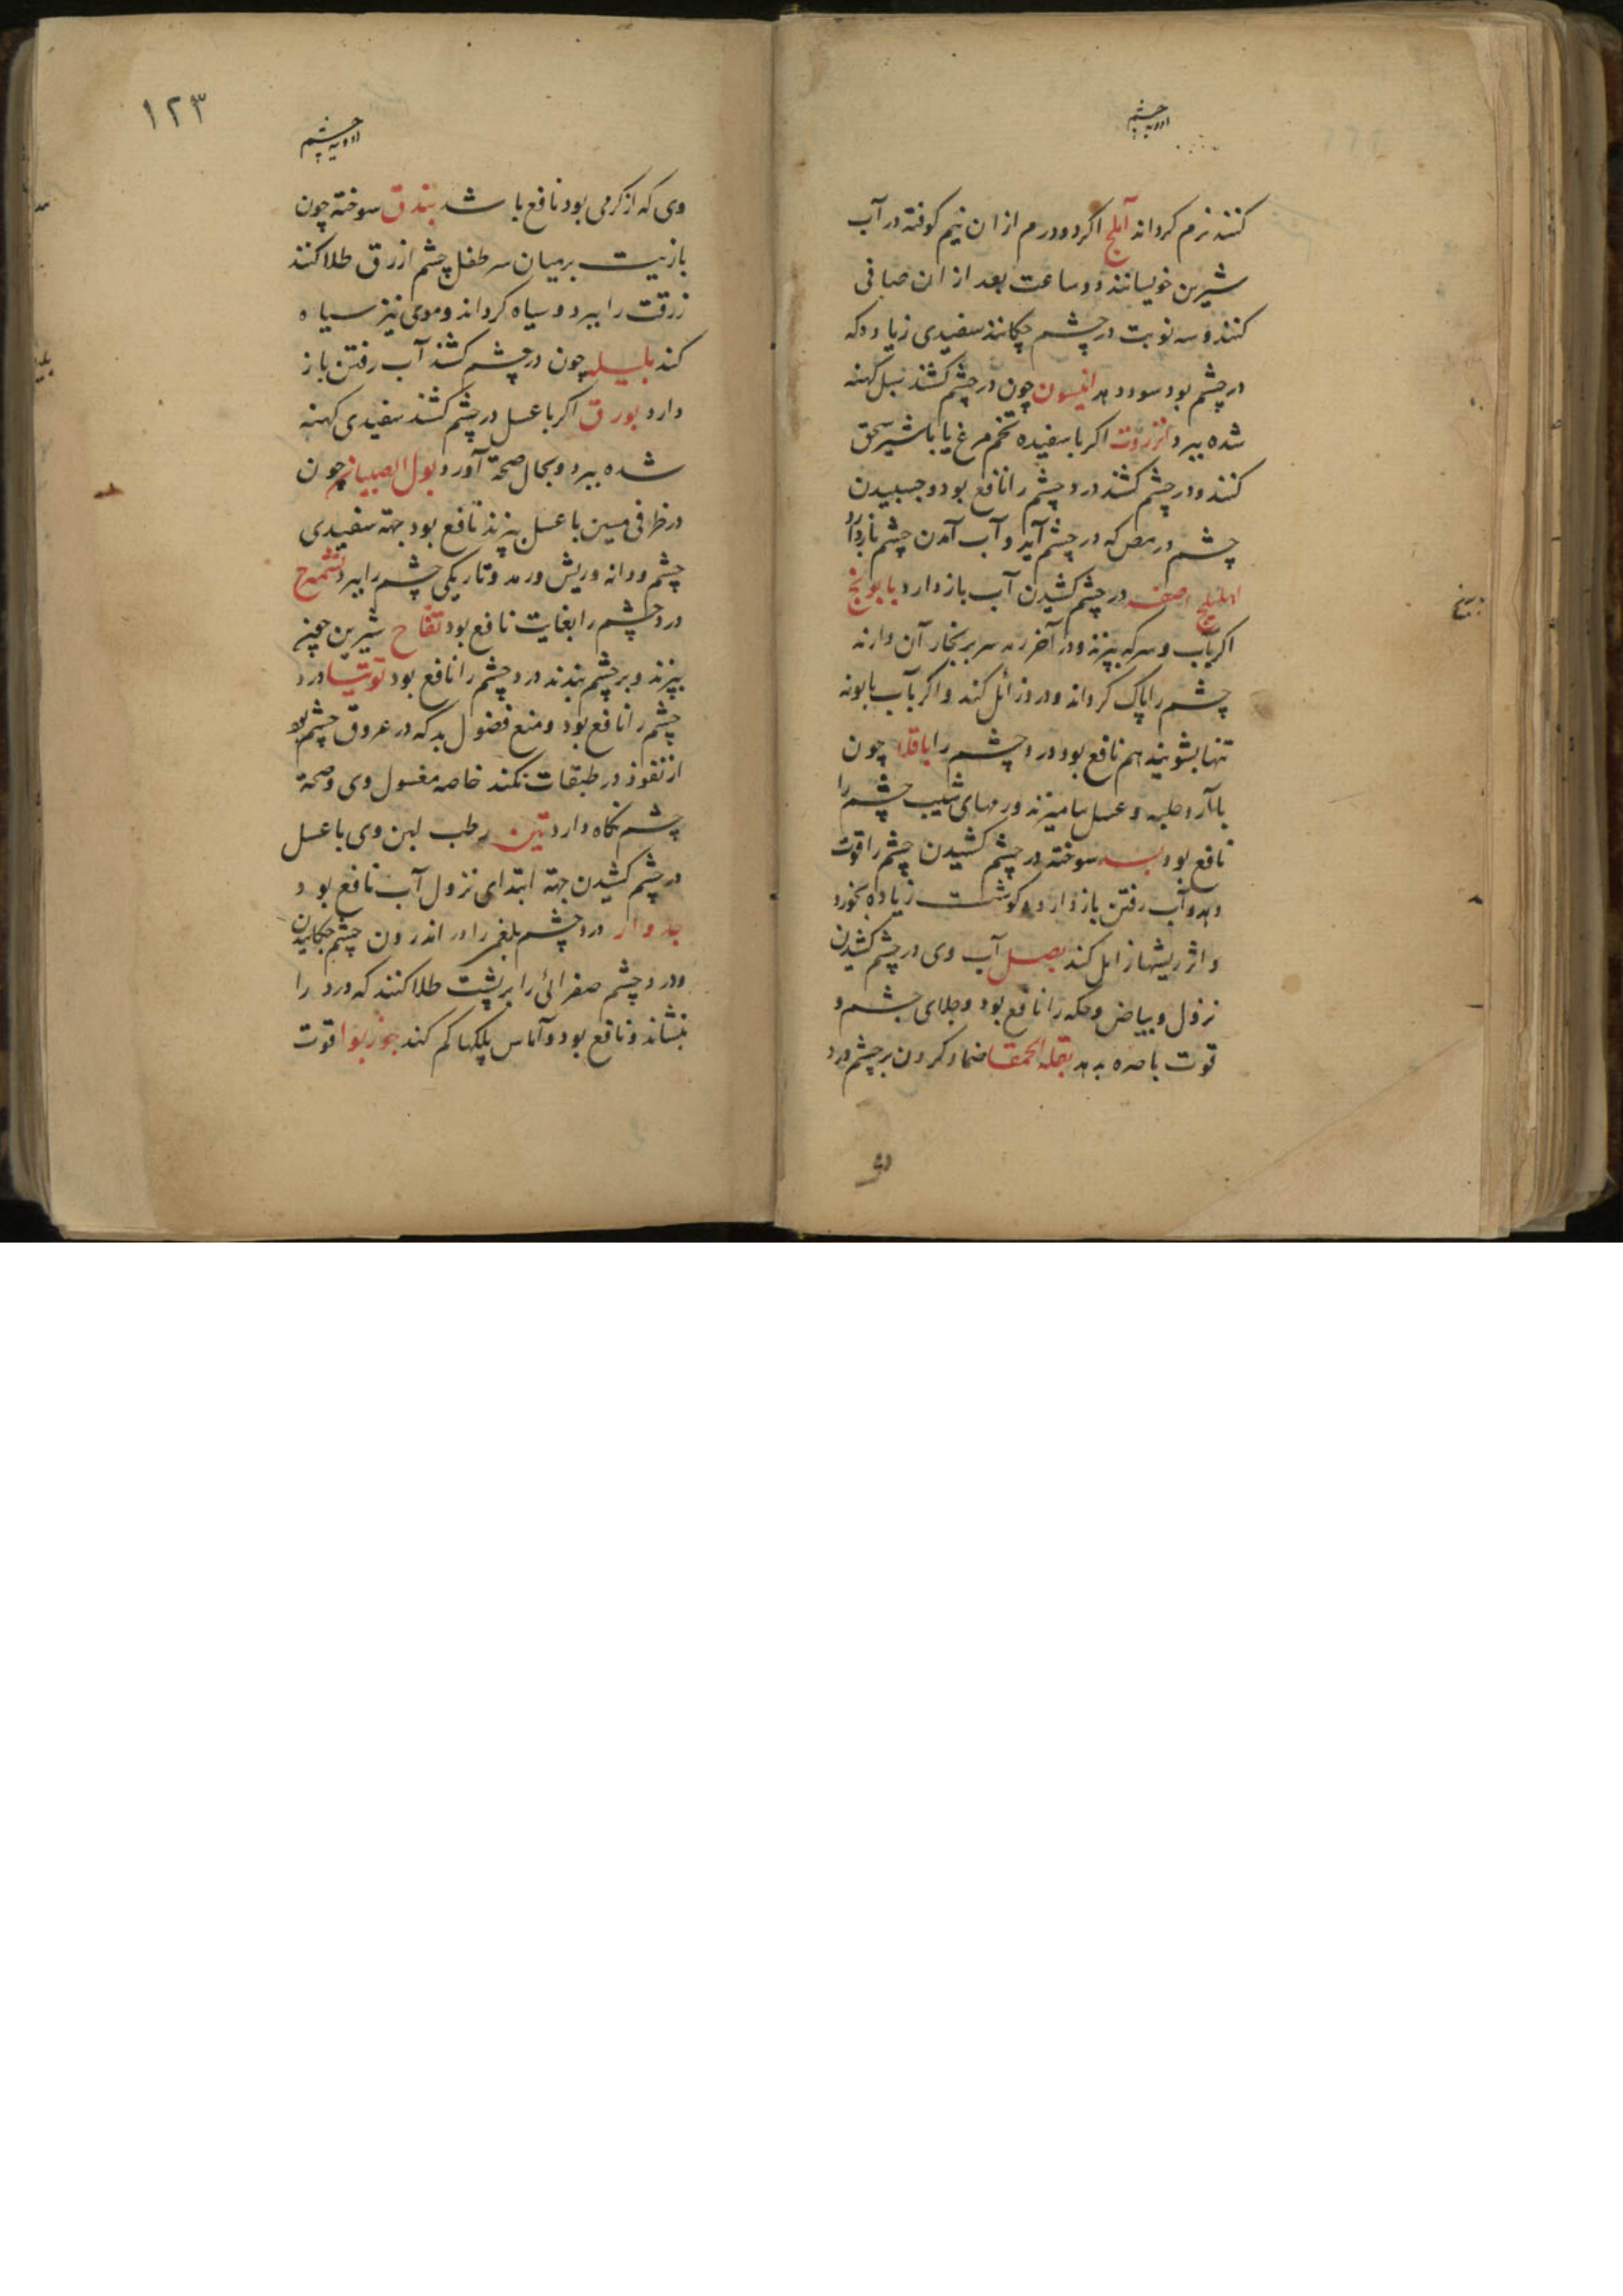 ادویه چشم
کنند نرم کرداند آملج اکر دو درم از ان نیم کوفته در آب
شیرین خویسانند دو ساعت بعد از ان صافی
کنند و سه نوبت در چشم چکانند سفیدی زیاده که
در چشم بود سود دهد انیسون چون در چشم کشند سبل کهنه
شده ببرد انزروت اکر با سفیده تخم مرغ یا با شیر سحق
کنند و در چشم کشند درد چشم را نافع بود و چسبیدن
چشم و رمص که در چشم آید و آب آمدن چشم باز دارد
اهلیلج اصفر در چشم کشیدن آب باز دارد بابونج
اکر بآب و سرکه بپزند و در آخر رمد سر بر بخار آن دارند
چشم را پاک کرداند و درد زائل کند و اکر بآب بابونه
تنها بشویند هم نافع بود درد چشم را باقلا چون
با آرد حلبه و عسل بیامیزند ورمهای شیب چشم را
نافع بود بسد سوخته در چشم کشیدن چشم را قوت
دهد و آب رفتن باز دارد و کوشت زیاده بخورد
و اثر ریشها زایل کند بصل آب وی در چشم کشیدن
نزول و بیاض و حکه را نافع بود و جلای چشم و
قوت باصره بدهد بقلة الحمقا ضماد کردن بر چشم درد
١٢٣
ادویه چشم
وی که از کرمی بود نافع باشد بندق سوخته چون
بازیت بر میان سر طفل چشم ازرق طلا کنند
زرقت را ببرد و سیاه کرداند و موی نیز سیاه
کند بلیله چون در چشم کشند آب رفتن باز
دارد بورق اکر با عسل در چشم کشند سفیدی کهنه
شده ببرد و بحال صحة آورد بول الصبیان چون
در ظرفی مسین با عسل بپزند نافع بود جهة سفیدی
چشم و دانه و ریش و رمد و تاریکی چشم را ببرد تشمیزج
درد چشم را بغایت نافع بود تفاح شیرین چون
بپزند و بر چشم بندند درد چشم را نافع بود توتیا درد
چشم را نافع بود و منع فضول بد که در عروق چشم بود
از نفوذ در طبقات بکند خاصه مغسول وی و صحة
چشم نکاه دارد تین رطب لبن وی با عسل
در چشم کشیدن جهة ابتدای نزول آب نافع بود
جدوار درد چشم بلغمی را در اندرون چشم چکانیدن
و درد چشم صفرائی را بر پشت طلا کنند که درد را
بنشاند و نافع بود و آماس پلکها کم کند جوزبوا قوت